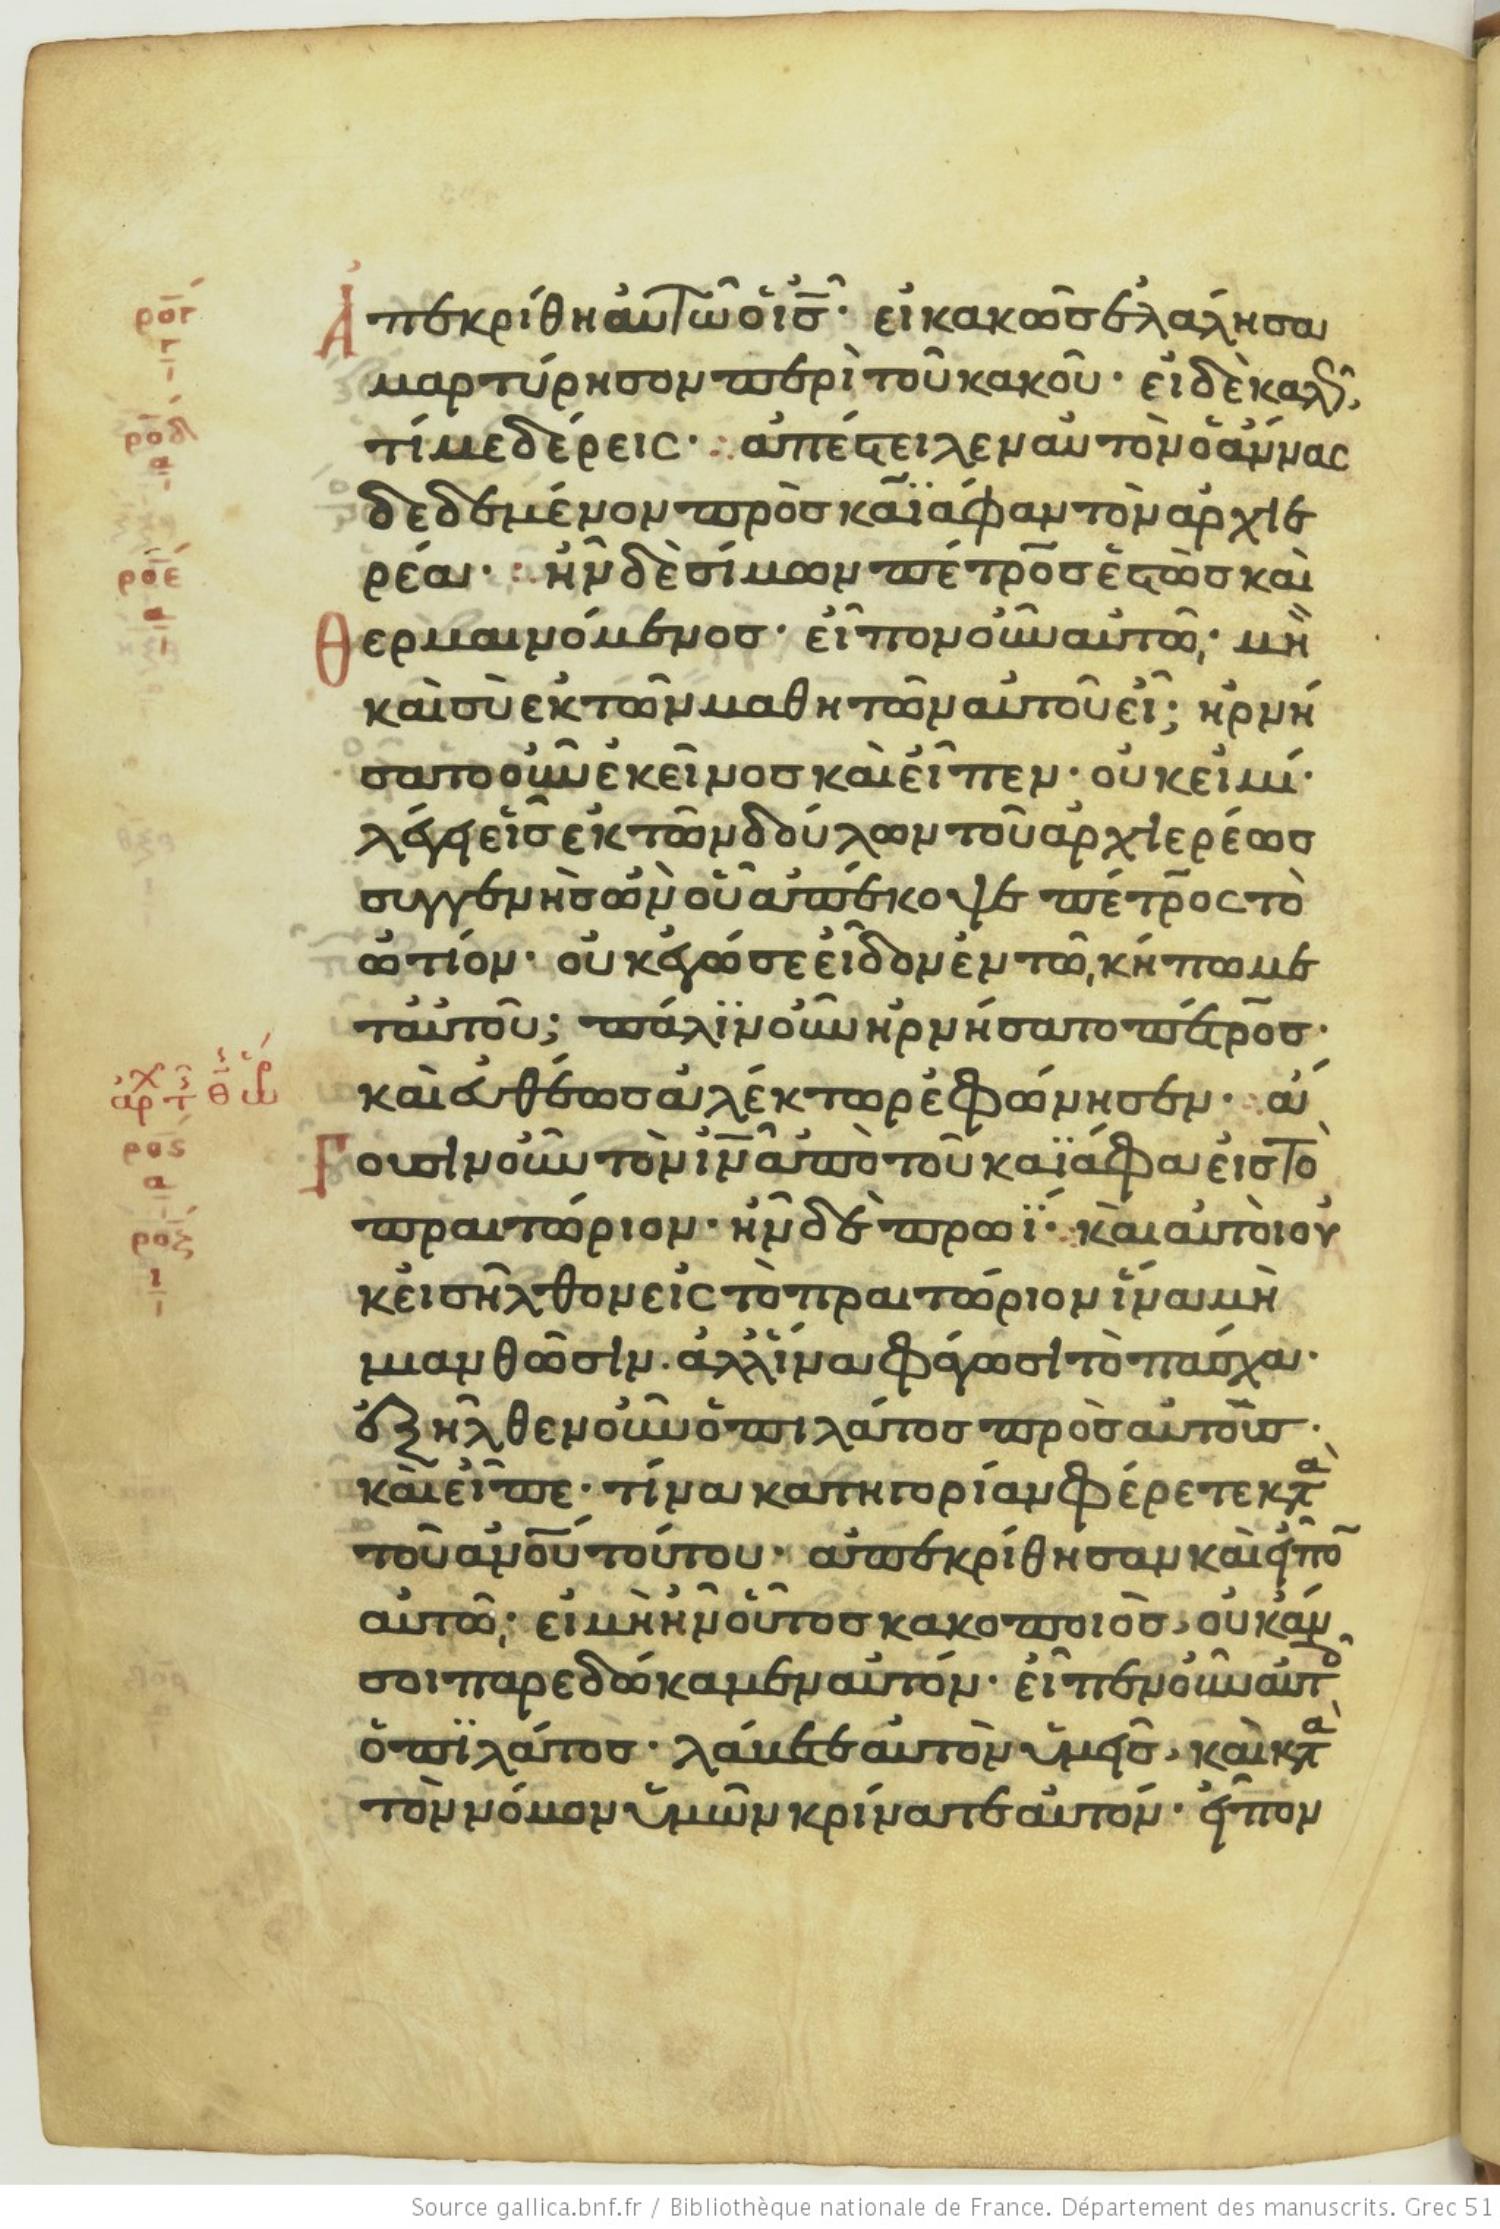 ρογ
γ
Ἀπεκρίθη αὐτῶ ὁ ισ· εἰ κακῶσ ἐλάλησα
μαρτύρησον περὶ τοῦ κακοῦ· εἰ δὲ καλῶς,
ροδ
α
τί με δέρεις· ἀπέστειλεν αὐτὸν ὁ ἄννας
δεδεμένον πρὸσ καϊάφαν τὸν ἀρχιε
ροε
α
ρέα· ἦν δὲ σίμων πέτροσ ἑστὼσ καὶ
Θερμαινόμενοσ· εἶπον οὖν αὐτῶ· μὴ
καὶ σὺ ἐκ τῶν μαθητῶν αὐτοῦ εἶ; ἠρνή
σατο οὖν ἐκεῖνοσ καὶ εἶπεν· οὐκ εἰμί·
λέγει εἷσ ἐκ τῶν δούλων τοῦ ἀρχιερέωσ
συγγενὴσ ὢν οὗ ἀπέκοψε πέτρος τὸ
ὠτίον· οὐκ ἐγώ σε εἶδον ἐν τῶ κήπω με
τ' αὐτοῦ; πάλϊν οὖν ἠρνήσατο πέτροσ·
καὶ εὐθέωσ ἀλέκτωρ ἐφώνησεν· ἄ
ρος
α
Γουσιν οὖν τὸν ιν ἀπὸ τοῦ καϊάφα εἰσ τὸ
ροζ
ι
πραιτώριον· ἦν δὲ πρωΐ· καὶ αὐτοὶ οὐ
κ εἰσῆλθον εἰς τὸ πραιτώριον ἵνα μὴ
μιανθῶσιν. ἀλλ' ἵνα φάγωσι τὸ πάσχα·
ἐξῆλθεν οὖν ὁ πιλάτοσ πρὸσ αὐτοὺσ·
καὶ εἶπε· τίνα κατηγορίαν φέρετε κτὰ
τοῦ ανου τούτου· ἀπεκρίθησαν καὶ εἶπο
αὐτῶ· εἰ μὴ ἦν οὗτοσ κακοποιὸσ, οὐκ ἄν
σοι παρεδώκαμεν αὐτόν· εἶπεν οὖν αὐτ
ὁ πϊλάτοσ· λάβετε αὐτὸν ὑμεῖσ, καὶ κτὰ
τὸν νόμον ὑμῶν κρίνατε αὐτόν· εἶπον
Source gallica.bnf.fr / Bibliothèque nationale de France. Département des manuscrits. Grec 51